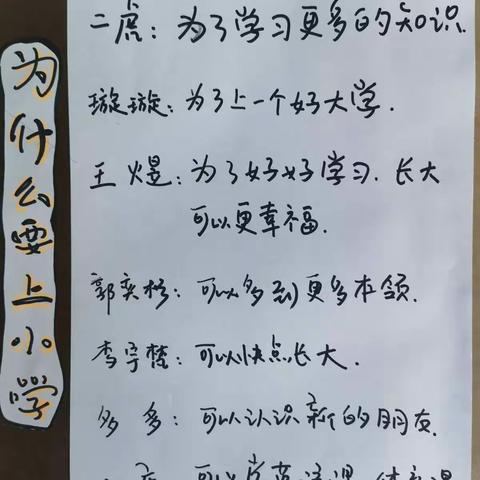 为什么要上小学
二虎：为了学习更多的知识.
璇璇：为了上一个好大学.
王煜：为了好好学习.长大
可以更幸福.
郭奕杉：可以多到更多本领.
李宇梵：可以快点长大.
多多：可以认识新的朋友.
可以